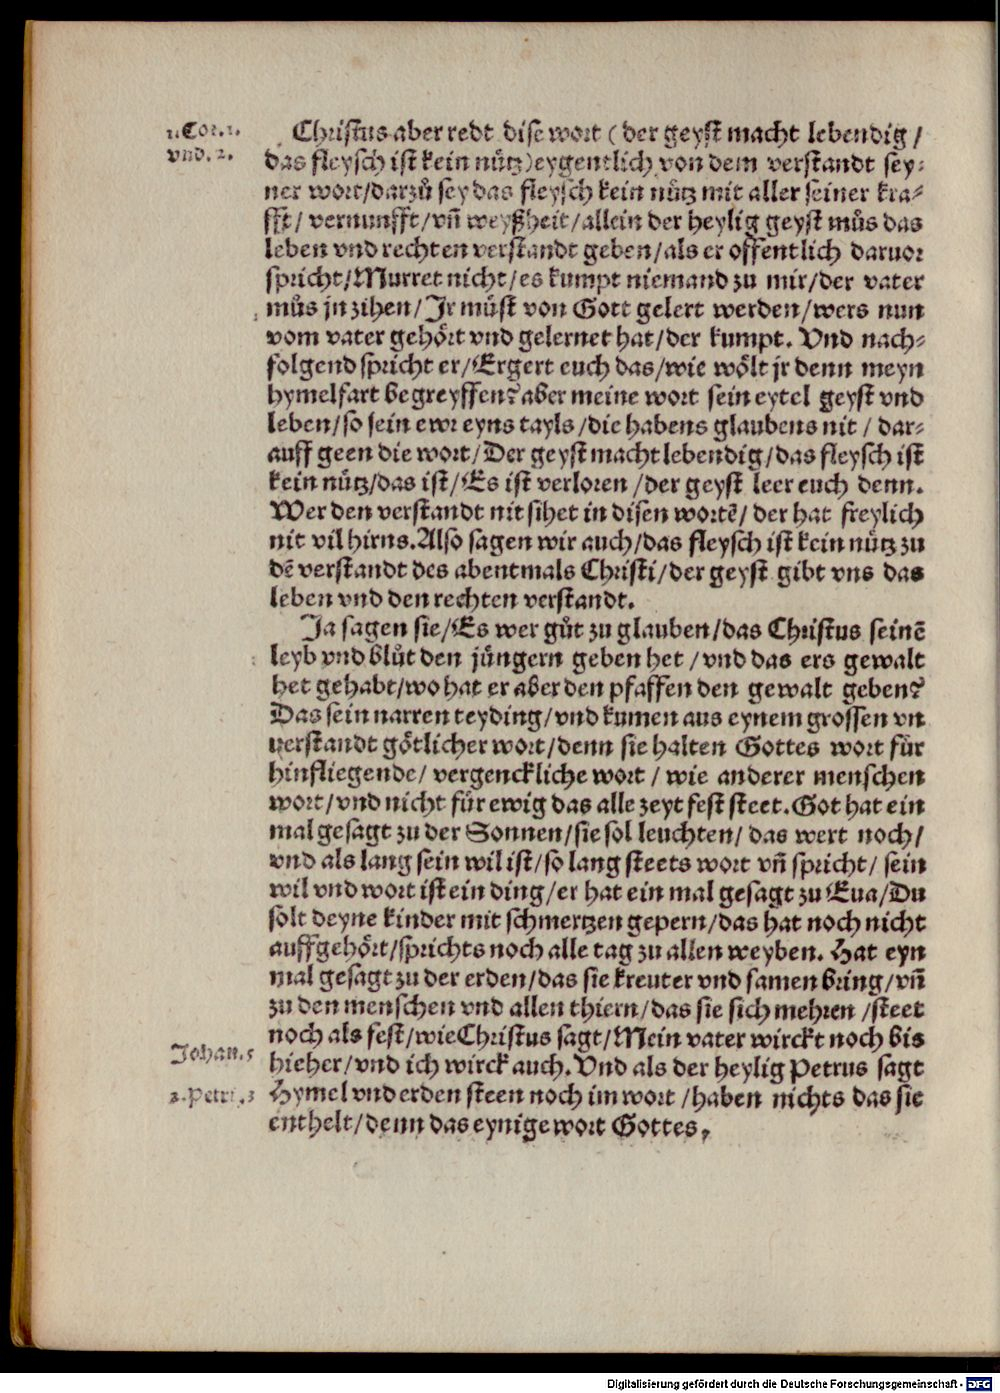 1.Cor.1.
vnd.2.
Christus aber redt dise wort (der geyst macht lebendig /
das fleysch ist kein nütz)eygentlich von dem verstandt sey⸗
ner wort/darzů sey das fleysch kein nütz mit aller seiner kra⸗
fft/ vernunfft/vn̄ weyßheit/allein der heylig geyst můs das
leben vnd rechten verstandt geben/als er offentlich daruor
spricht/Murret nicht/es kumpt niemand zu mir/der vater
můs jn zihen/Jr můst von Gott gelert werden/wers nun
vom vater gehört vnd gelernet hat/der kumpt. Vnd nach⸗
folgend spricht er/Ergert euch das/wie wölt jr denn meyn
hymelfart begreyffen? aber meine wort sein eytel geyst vnd
leben/so sein ewr eyns tayls/die habens glaubens nit / dar⸗
auff geen die wort/Der geyst macht lebendig/das fleysch ist
kein nütz/das ist/Es ist verloren /der geyst leer euch denn.
Wer den verstandt nit sihet in disen wortē/ der hat freylich
nit vil hirns.Also sagen wir auch/das fleysch ist kein nütz zu
dē verstandt des abentmals Christi/der geyst gibt vns das
leben vnd den rechten verstandt.
Ja sagen sie/Es wer gůt zu glauben/das Christus seinē
leyb vnd blůt den jüngern geben het /vnd das ers gewalt
het gehabt/wo hat er aber den pfaffen den gewalt geben?
Das sein narren teyding/vnd kumen aus eynem grossen vn
verstandt götlicher wort/denn sie halten Gottes wort für
hinfliegende/ vergenckliche wort / wie anderer menschen
wort/vnd nicht für ewig das alle zeyt fest steet.Got hat ein
mal gesagt zu der Sonnen/sie sol leuchten/ das wert noch/
vnd als lang sein wil ist/so lang steets wort vn̄ spricht/ sein
wil vnd wort ist ein ding/er hat ein mal gesagt zu Eua/Du
solt deyne kinder mit schmertzen gepern/das hat noch nicht
auffgehört/sprichts noch alle tag zu allen weyben. Hat eyn
mal gesagt zu der erden/das sie kreuter vnd samen bring/vn̄
zu den menschen vnd allen thiern/das sie sich mehren /steet
noch als fest/wie Christus sagt/Mein vater wirckt noch bis
Johan.5
hieher/vnd ich wirck auch. Vnd als der heylig Petrus sagt
2.Petri.3
Hymel vnd erden steen noch im wort /haben nichts das sie
enthelt/denn das eynige wort Gottes.
Digitalisierung gefördert durch die Deutsche Forschungsgemeinschaft - DFG